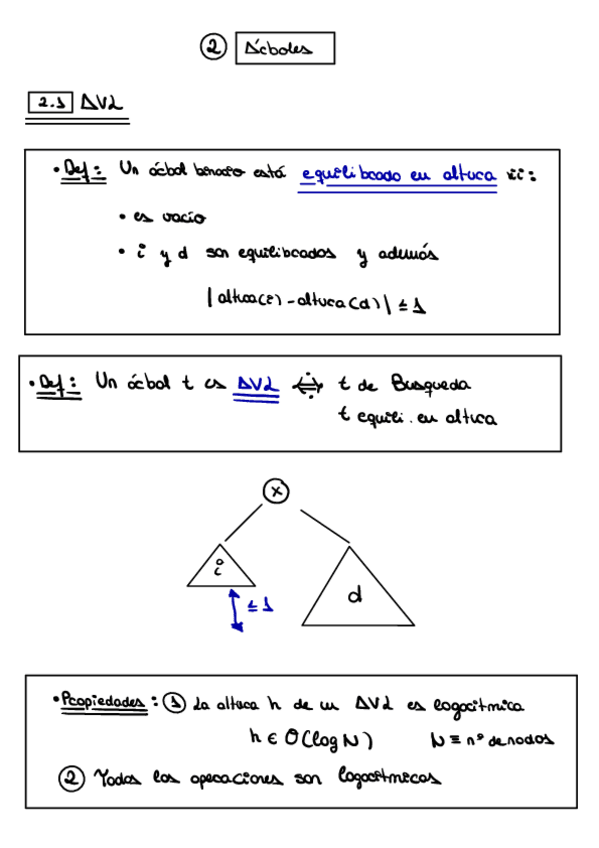 ② Árboles
2.1 AVL
• Def: Un árbol binario está equilibrado en altura sii:
• es vacío
• i y d son equilibrados y además
|altura(i) - altura(d)| ≤ 1
• Def: Un árbol t es AVL ⟺ t de Búsqueda
t equili. en altura
x
i
d
≤ 1
• Propiedades: ① La altura h de un AVL es logarítmica
h ∈ O(log N) N ≡ nº de nodos
② Todas las operaciones son logarítmicas